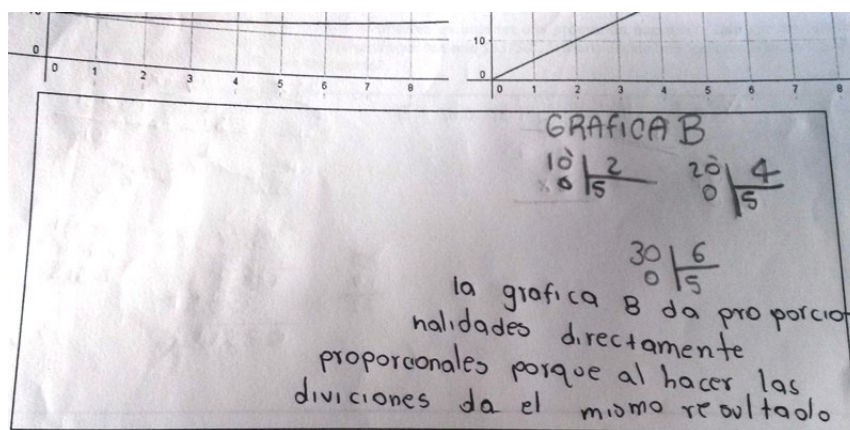 10
0
0 1 2 3 4 5 6 7 8
0
0 1 2 3 4 5 6 7 8
GRAFICA B
10 2 20 4
0 5 0 5
30 6
0 5
la grafica B da proporcio
nalidades directamente
proporcionales porque al hacer las
diviciones da el mismo resultado